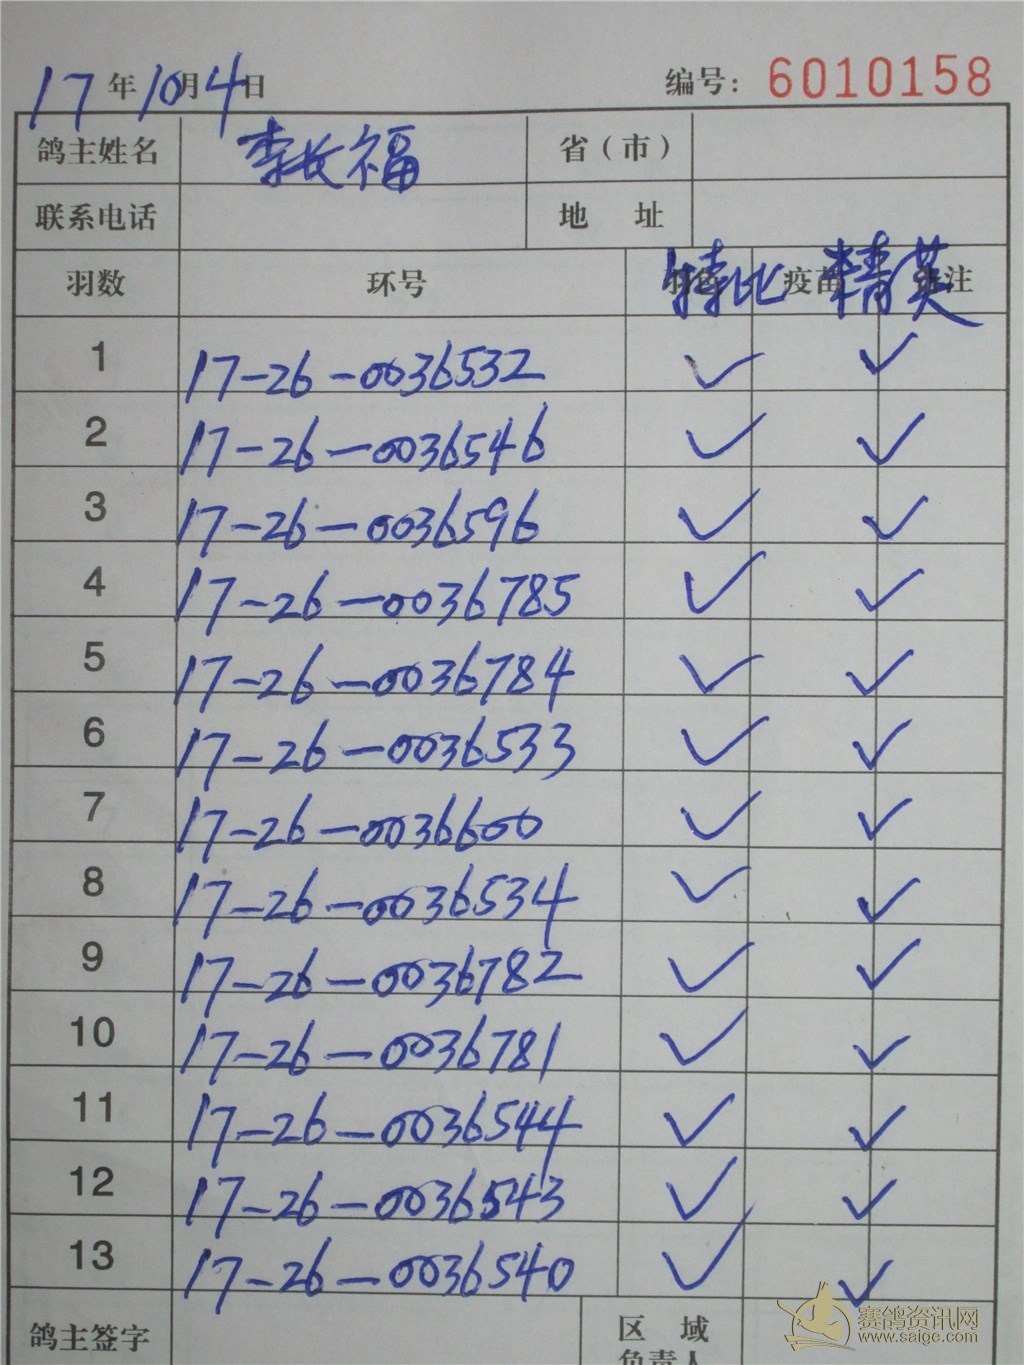 17年10月4日 编号：6010158
鸽主姓名 李长福 省（市）
联系电话 地 址
羽数 环号 特比 疫苗 精英 备注
1 17-26-0036532 ✓ ✓
2 17-26-0036546 ✓ ✓
3 17-26-0036596 ✓ ✓
4 17-26-0036785 ✓ ✓
5 17-26-0036784 ✓ ✓
6 17-26-0036533 ✓ ✓
7 17-26-0036600 ✓ ✓
8 17-26-0036534 ✓ ✓
9 17-26-0036782 ✓ ✓
10 17-26-0036781 ✓ ✓
11 17-26-0036544 ✓ ✓
12 17-26-0036543 ✓ ✓
13 17-26-0036540 ✓ ✓
鸽主签字 区 域
负责人
赛鸽资讯网
www.saige.com